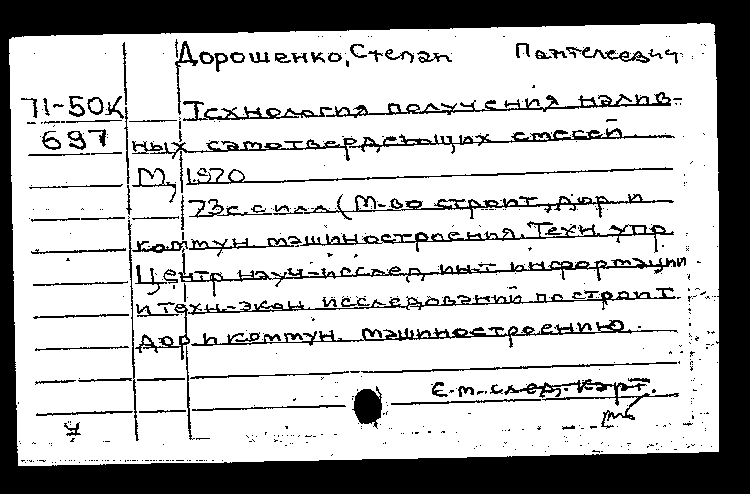 Дорошенко, Степан Пантелеевич
71-50К Технология получения налив-
697 ных самотвердеющих смесей
М, 1970
73с. с илл (М-во строит, дор и
коммун машиностроения. Техн. упр
Центр науч-исслед инт информации
и техн-экон исследований по строит
дор и коммун. машиностроению.
См. след. карт.